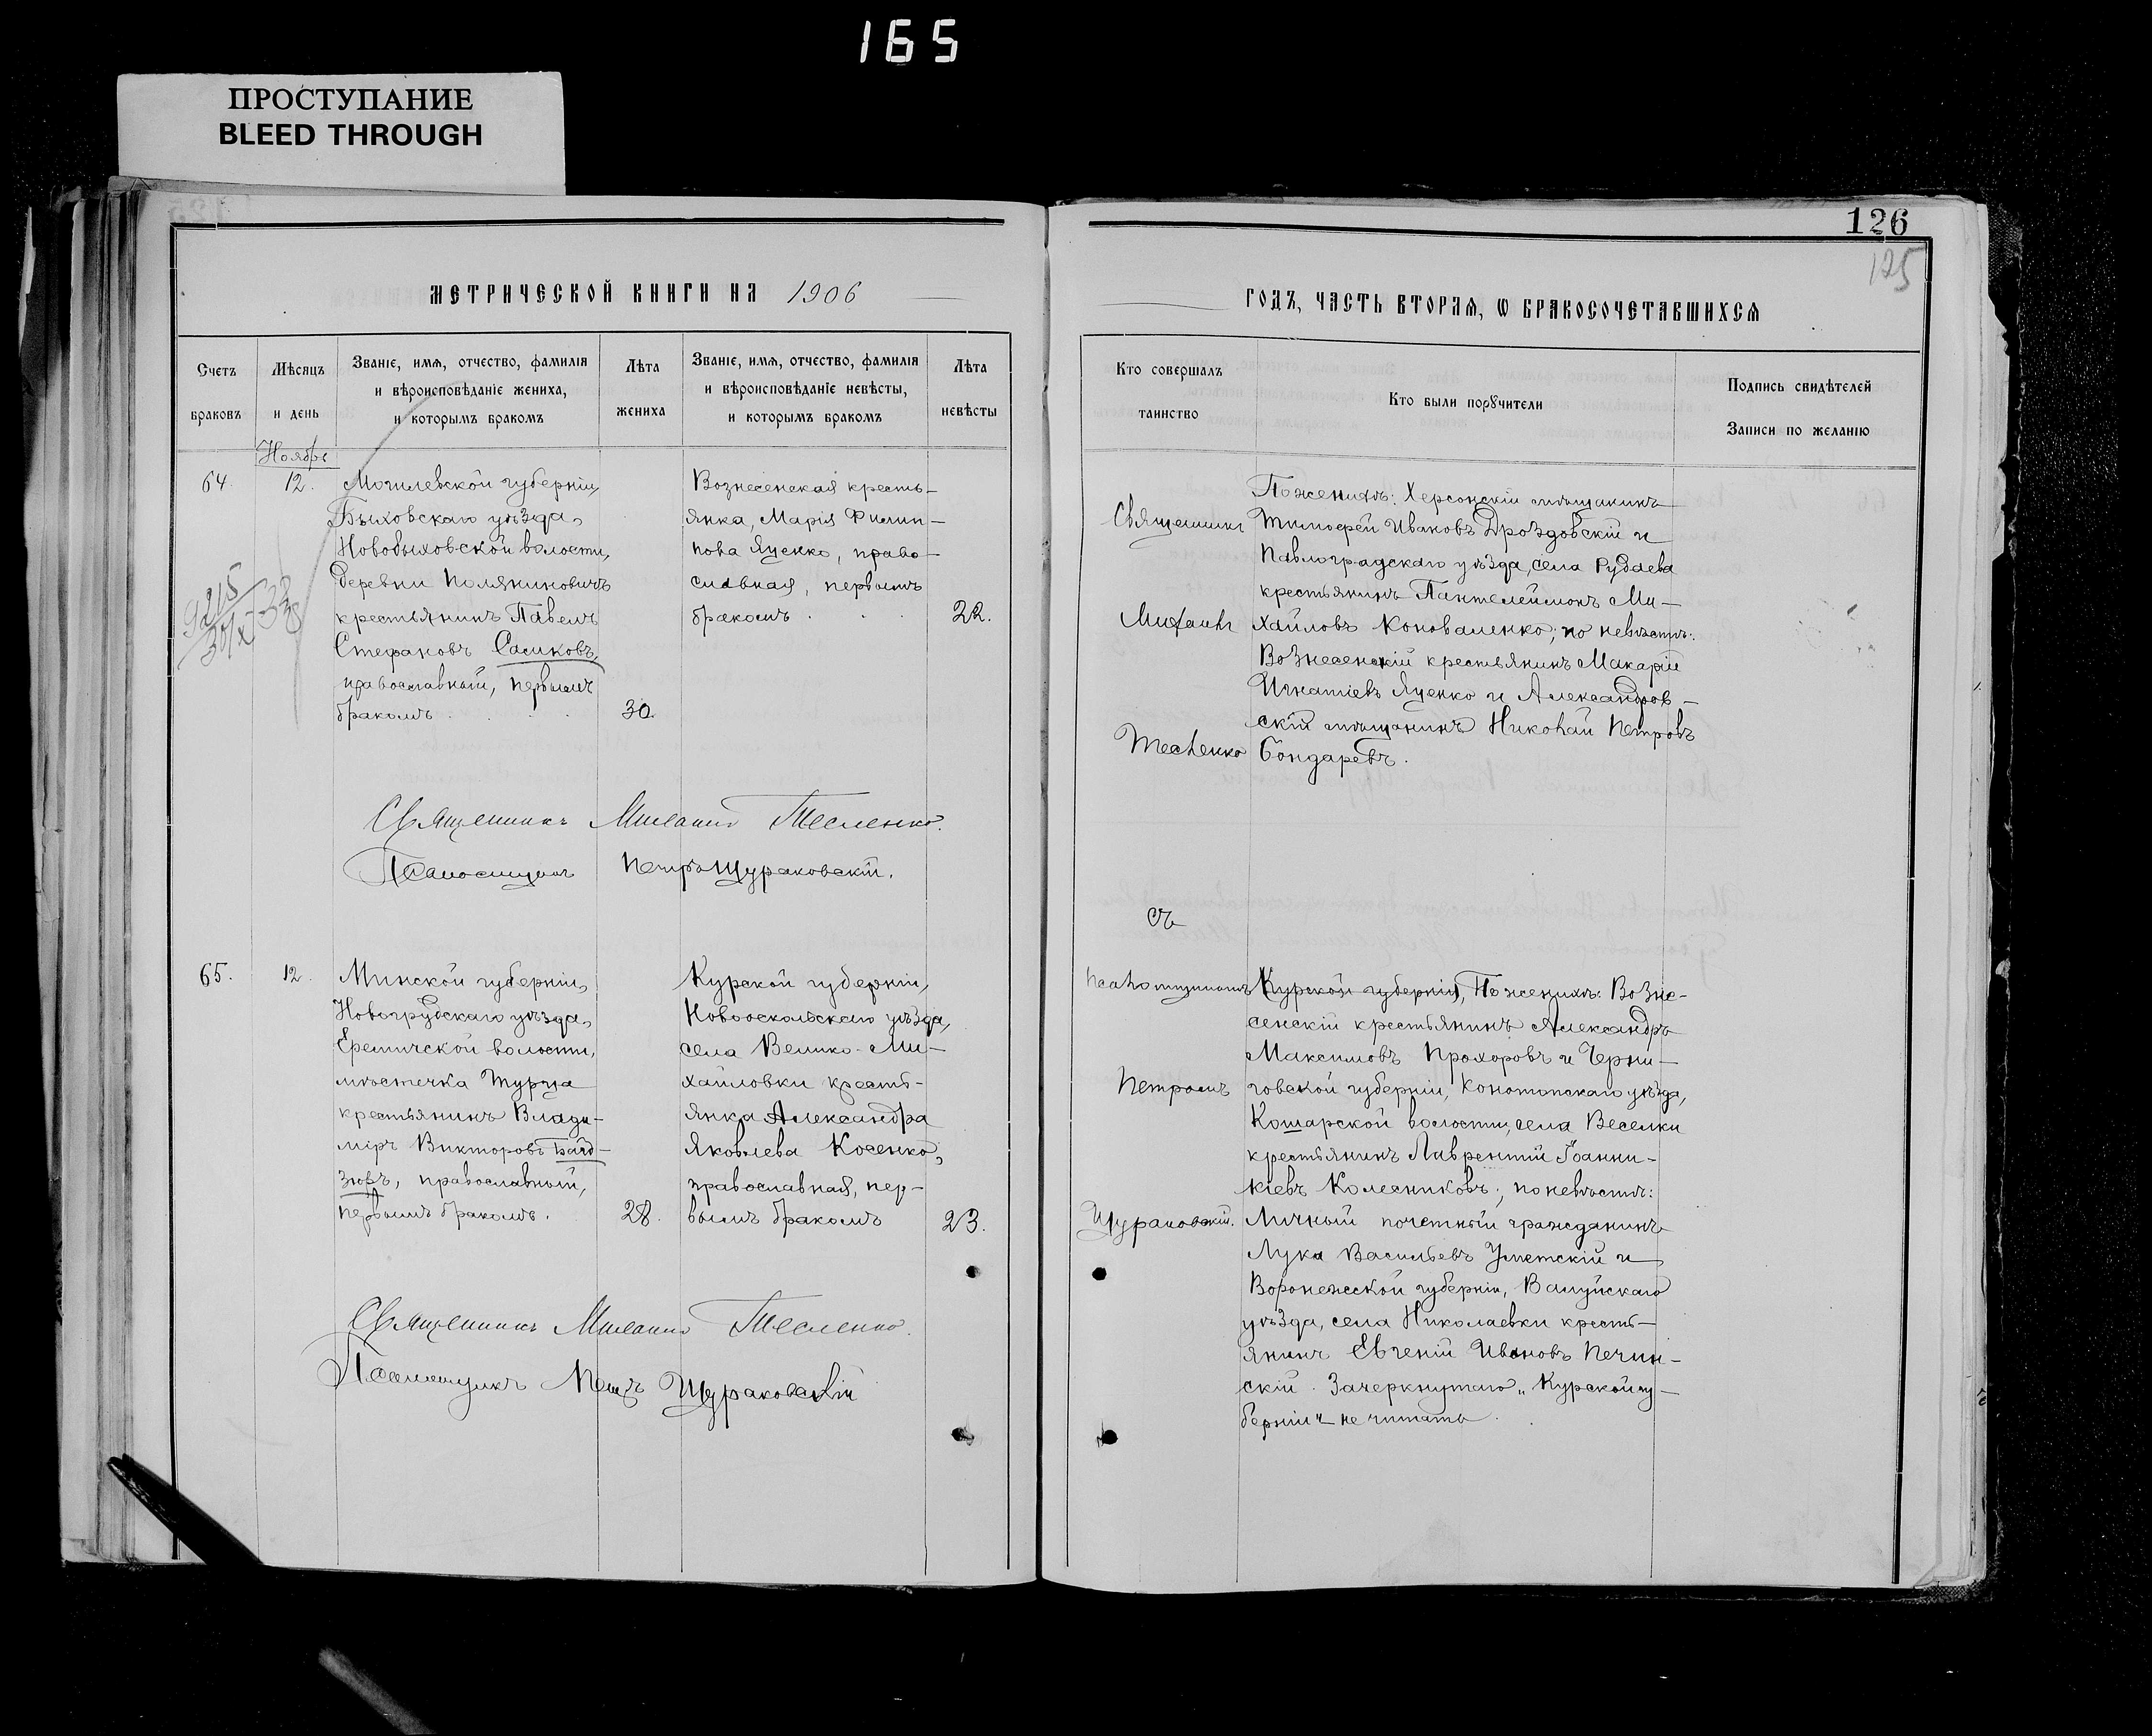 165
ПРОСТУПАНИЕ
BLEED THROUGH
126
125
МЕТРИЧЕСКОЙ КНИГИ НА 1906
ГОДЪ, ЧАСТЬ ВТОРАЯ, Ѡ БРАКОСОЧЕТАВШИХСЯ
Счетъ браковъ
Мѣсяцъ и день
Званіе, имя, отчество, фамилія
и вѣроисповѣданіе жениха,
и которымъ бракомъ
Лѣта жениха
Званіе, имя, отчество, фамилія
и вѣроисповѣданіе невѣсты,
и которымъ бракомъ
Лѣта невѣсты
Кто совершалъ таинство
Кто были порꙋчители
Подпись свидѣтелей
Записи по желанію
Ноябрь
64.
12.
Могилевской губерніи,
Быховскаго уѣзда,
Новобыховской волости,
деревни
крестьянинъ Павелъ
Стефановъ Саликовъ,
православный, первымъ
бракомъ
30.
Вознесенская кресть-
янка, Марія Филип-
пова Яценко, право-
славная, первымъ
бракомъ
22.
Священникъ
Михаилъ
Тесленко
По женихѣ: Херсонскій мѣщанинъ
Тимофей Ивановъ Дроздовскій и
Павлоградскаго уѣзда, села Рудаева
крестьянинъ Пантелеймонъ Ми-
хайловъ Коноваленко; по невѣстѣ:
Вознесенскій крестьянинъ Макарій
Игнатіевъ Яценко и Александров-
скій мѣщанинъ Николай Петровъ
Бондаревъ.
Священникъ Михаилъ Тесленко.
Псаломщикъ Петръ Щураковскій.
съ
65.
12.
Минской губерніи,
Новогрудскаго уѣзда,
Еремичской волости,
мѣстечка Турца
крестьянинъ Влади-
міръ Викторовъ Байд-
зюръ, православный,
первымъ бракомъ.
28.
Курской губерніи,
Новооскольскаго уѣзда,
села Велико-Ми-
хайловки кресть-
янка Александра
Яковлева Косенко,
православная, пер-
вымъ бракомъ
23.
Псаломщикомъ
Петромъ
Щураковскій.
Курской губерніи, По женихѣ: Возне-
сенскій крестьянинъ Александръ
Максимовъ Прохоровъ и Черни-
говской губерніи, Конотопскаго уѣзда,
Кошарской волости, села Веселки
крестьянинъ Лаврентій Іоанни-
кіевъ Колесниковъ; по невѣстѣ:
Личный почетный гражданинъ
Лука Васильевъ Уметскій и
Воронежской губерніи, Валуйскаго
уѣзда, села Николаевки кресть-
янинъ Евгеній Ивановъ Печин-
скій. Зачеркнутаго „Курской гу-
берніи“ не читать.
Священникъ Михаилъ Тесленко.
Псаломщикъ Петръ Щураковскій